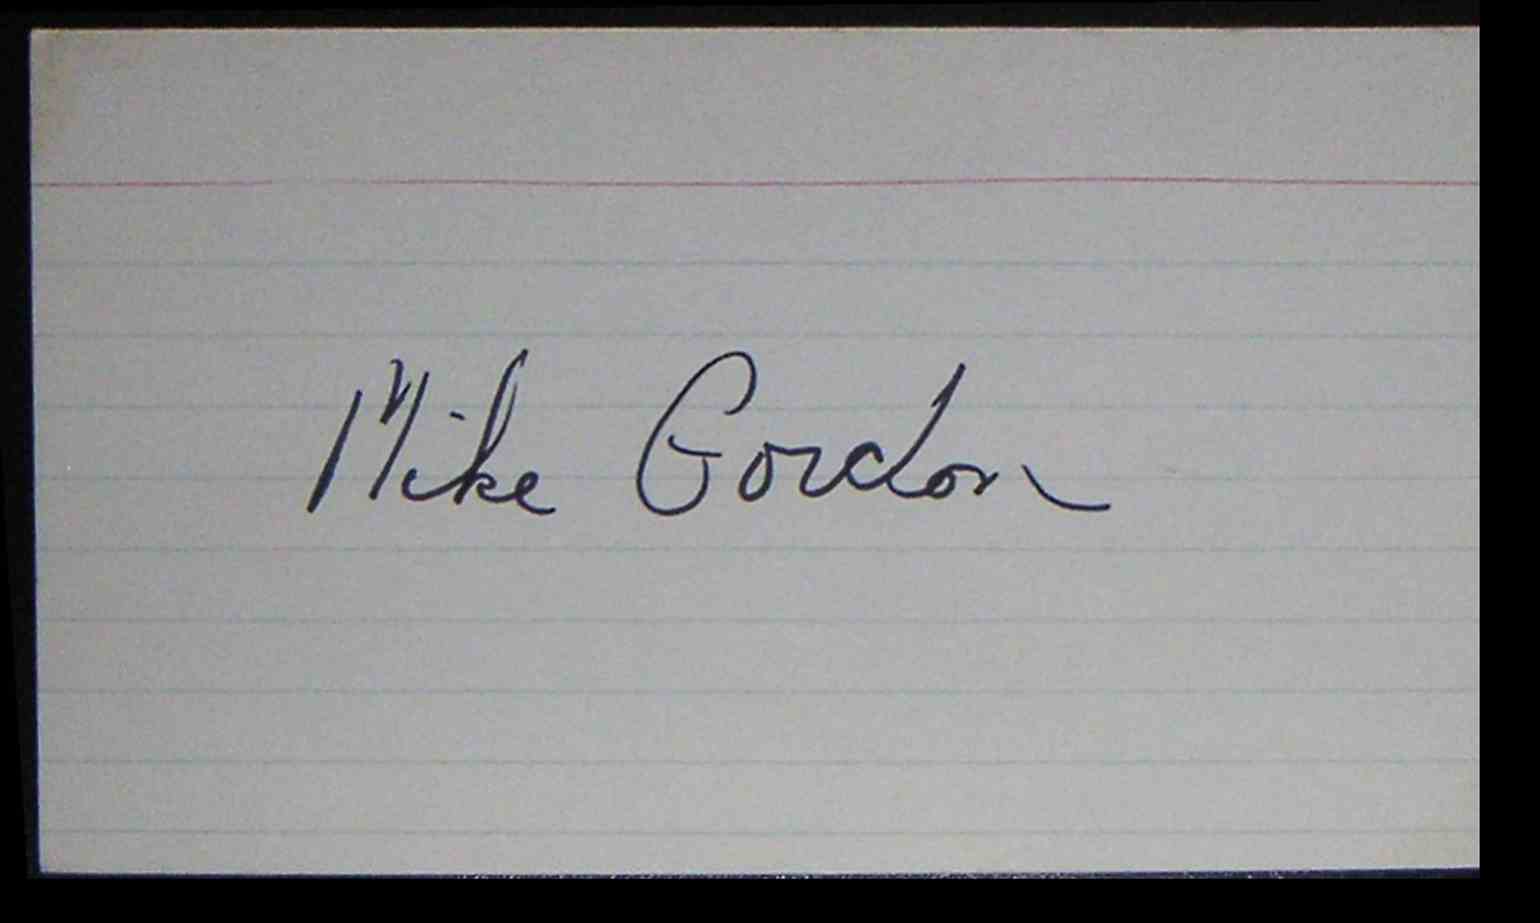 Mike Gordon